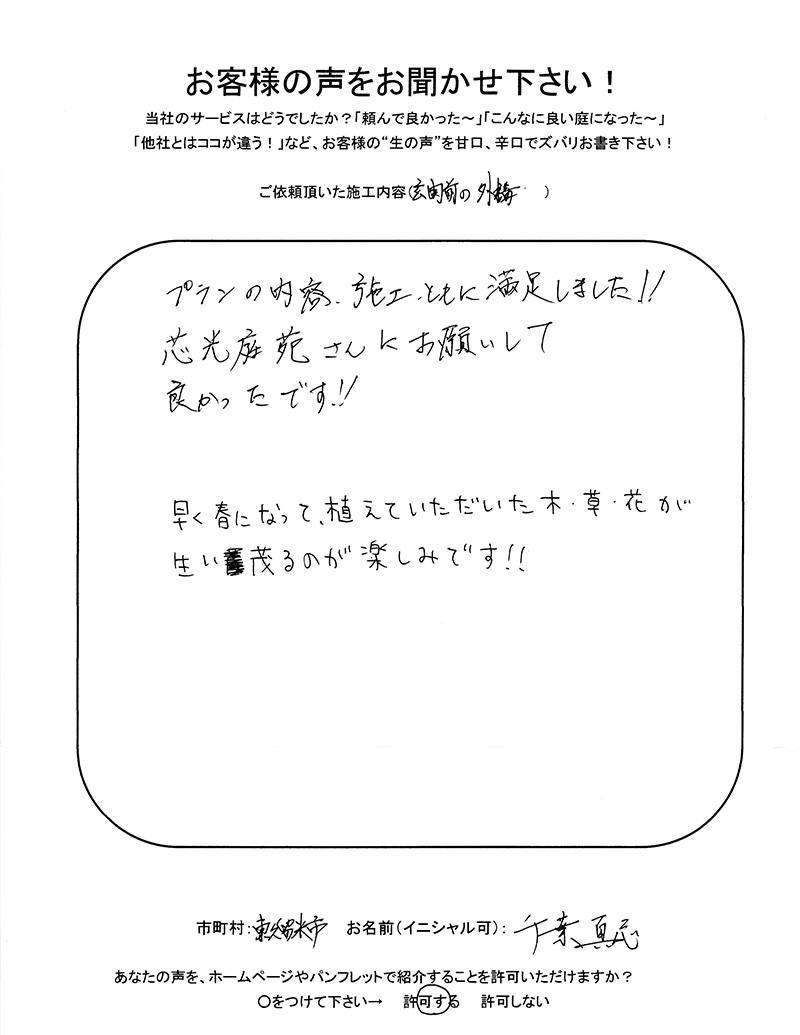 お客様の声をお聞かせ下さい！
当社のサービスはどうでしたか？「頼んで良かった～」「こんなに良い庭になった～」
「他社とはココが違う！」など、お客様の“生の声”を甘口、辛口でズバリお書き下さい！
ご依頼頂いた施工内容(玄関前の外構 )
プランの内容、施工、ともに満足しました!!
芯光庭苑さんにお願いして
良かったです!!
早く春になって、植えていただいた木・草・花が
生い茂るのが楽しみです!!
市町村:東久留米市 お名前(イニシャル可): 千葉真
あなたの声を、ホームページやパンフレットで紹介することを許可いただけますか？
〇をつけて下さい→ 許可する 許可しない